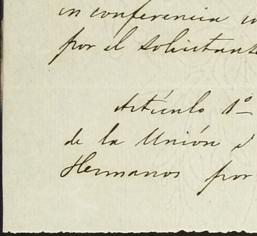 en conferencia
por el solicitante
Artículo 1º
de la Unión
Hermanos por